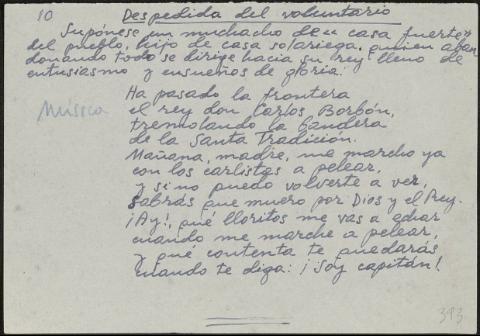 10 Despedida del voluntario
Supónese un muchacho de "casa fuerte"
del pueblo, hijo de casa solariega, quien aban
donando todo se dirige hacia su rey lleno de
entusiasmo y ensueños de gloria.
Música
Ha pasado la frontera
el rey don Carlos Borbón,
tremolando la bandera
de la Santa Tradición.
Mañana, madre, me marcho ya
con los carlistas a pelear,
y si no puedo volverte a ver,
sabrás que muero por Dios y el Rey.
¡Ay!, qué lloritos me vas a echar
cuando me marche a pelear,
y qué contenta te quedarás
cuando te diga: ¡Soy capitán!
393